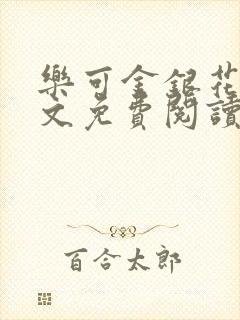 樂可金銀花
文免費閱讀
百合太郎